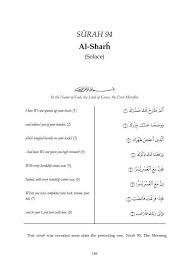 SŪRAH 94
Al-Sharḥ
(Solace)
In the Name of God, the Lord of Grace, the Ever Merciful.
Have We not opened up your heart, (1)
أَلَمْ نَشْرَحْ لَكَ صَدْرَكَ ۝١
and relieved you of your burden, (2)
وَوَضَعْنَا عَنكَ وِزْرَكَ ۝٢
which weighed heavily on your back? (3)
الَّذِي أَنقَضَ ظَهْرَكَ ۝٣
And have We not given you high renown? (4)
وَرَفَعْنَا لَكَ ذِكْرَكَ ۝٤
With every hardship comes ease. (5)
فَإِنَّ مَعَ الْعُسْرِ يُسْرًا ۝٥
Indeed, with every hardship comes ease. (6)
إِنَّ مَعَ الْعُسْرِ يُسْرًا ۝٦
When you have completed your task,
فَإِذَا فَرَغْتَ فَانصَبْ ۝٧
and to your Lord turn with love. (8)
وَإِلَىٰ رَبِّكَ فَارْغَب ۝٨
This sūrah was revealed soon after the preceding one, Sūrah 93, The Morning